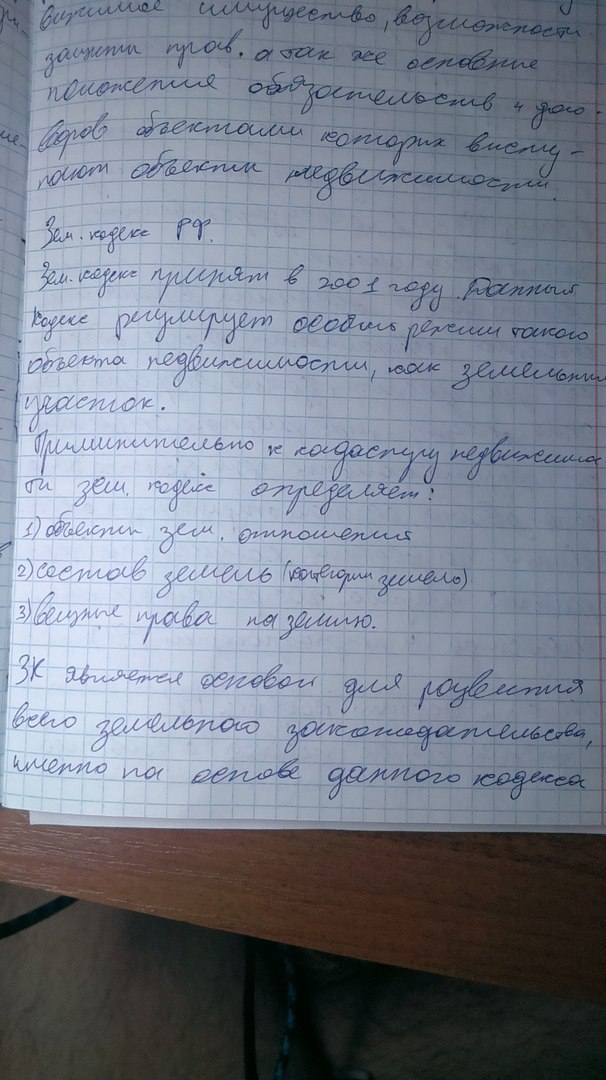 вижимое имущество, возможности
защиты прав. а так же основные
положения обязательств и дого-
воров объектами которых высту-
пают объекты недвижимости.
Зем. кодекс РФ.
Зем. кодекс принят в 2001 году. Данный
кодекс регулирует особый режим такого
объекта недвижимости, как земельный
участок.
Приминительно к кадастру недвижимос
ти зем. кодекс определяет:
1) объекты зем. отношения
2) состав земель (категории земель)
3) вещные права на землю.
ЗК является основой для развития
всего земельного законодательства,
именно на основе данного кодекса